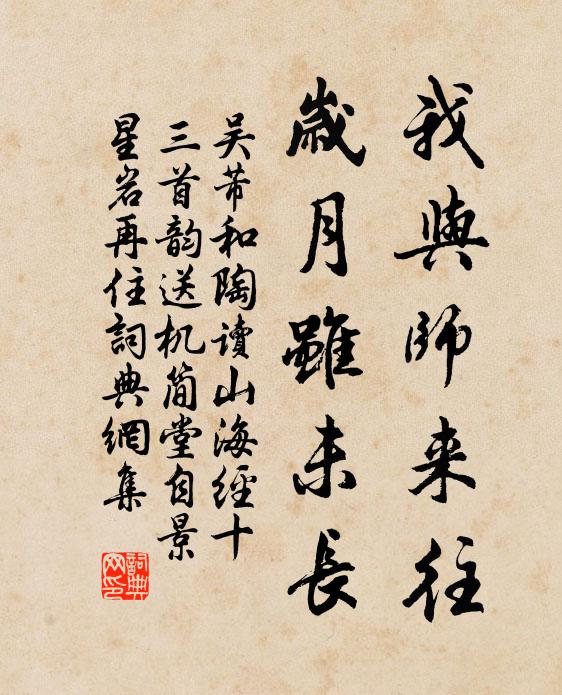 我與師来往
歲月雖未長
吴芾和陶讀山海經十
三首韵送机简堂自景
星岩再住詞典網集
詞典
网印